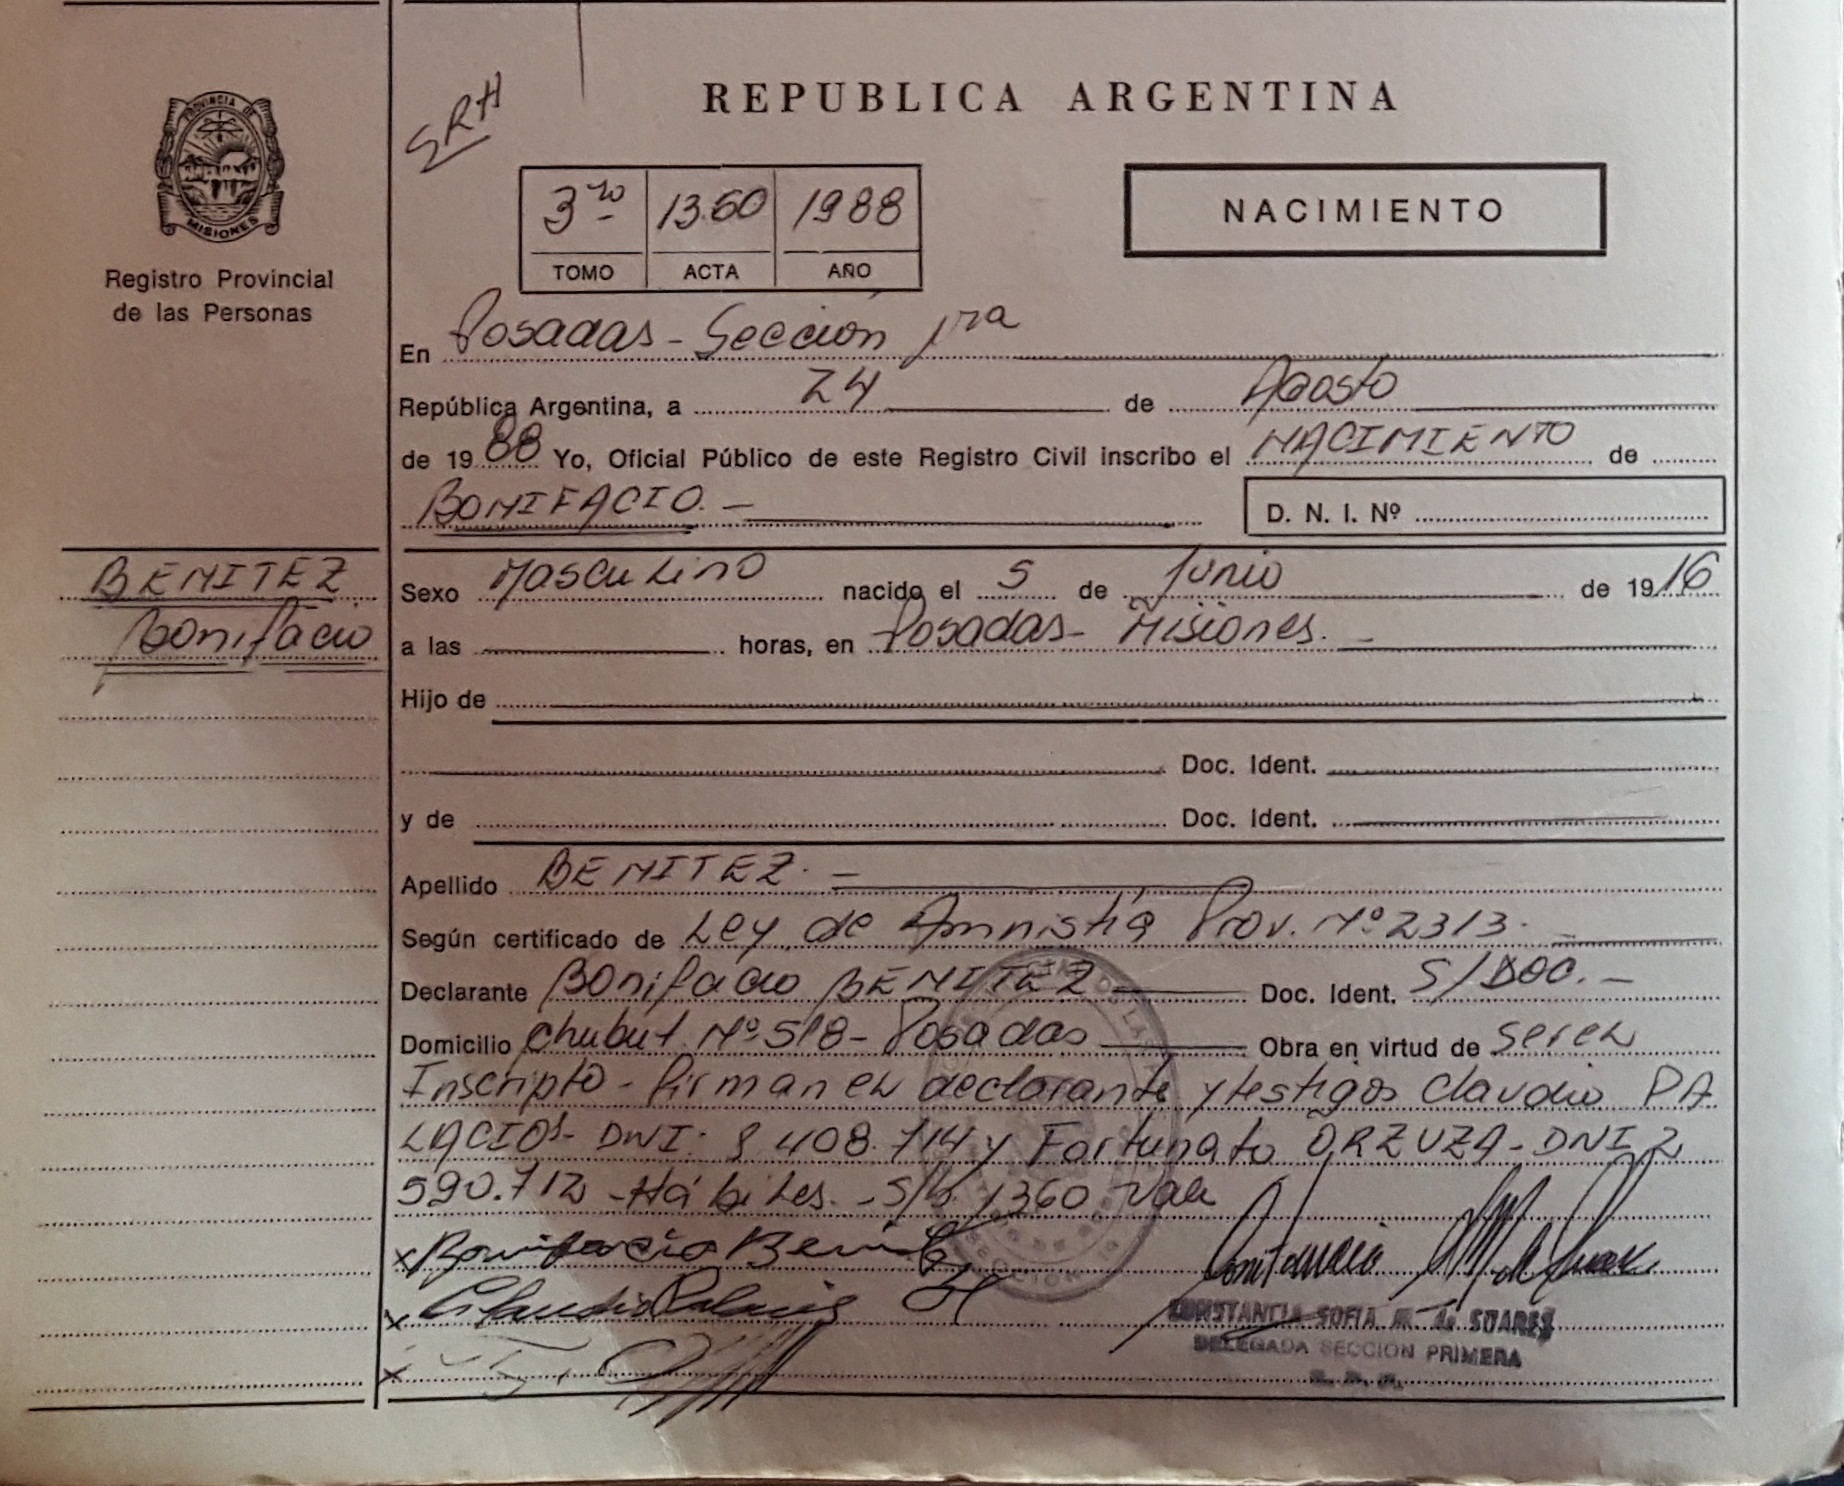 REPUBLICA ARGENTINA
SRH
PROVINCIA DE
MISIONES
Registro Provincial
de las Personas
3ro 1360 1988
TOMO ACTA AÑO
NACIMIENTO
En Posadas - Sección 1ra
República Argentina, a 24 de Agosto
de 1988 Yo, Oficial Público de este Registro Civil inscribo el NACIMIENTO de
BONIFACIO. -
D. N. I. Nº
BENITEZ
Bonifacio
Sexo Masculino nacido el 5 de Junio de 1916
a las horas, en Posadas - Misiones. -
Hijo de
Doc. Ident.
y de Doc. Ident.
Apellido BENITEZ. -
Según certificado de Ley de Amnistía Prov. Nº 2313.
Declarante Bonifacio BENITEZ Doc. Ident. S/DOC. -
Domicilio Chubut Nº 518 - Posadas Obra en virtud de ser el
Inscripto - Firman el declarante y testigos Claudio PA
LACIOS - DNI: 8.408.714 y Fortunato ORZUZA - DNI 2
590.712 - Hábiles. - S/b. 1360 Vale
x Bonifacio Benitez
x Claudio Palacios
x
CONSTANCIA SOFIA M. de SUARES
DELEGADA SECCION PRIMERA